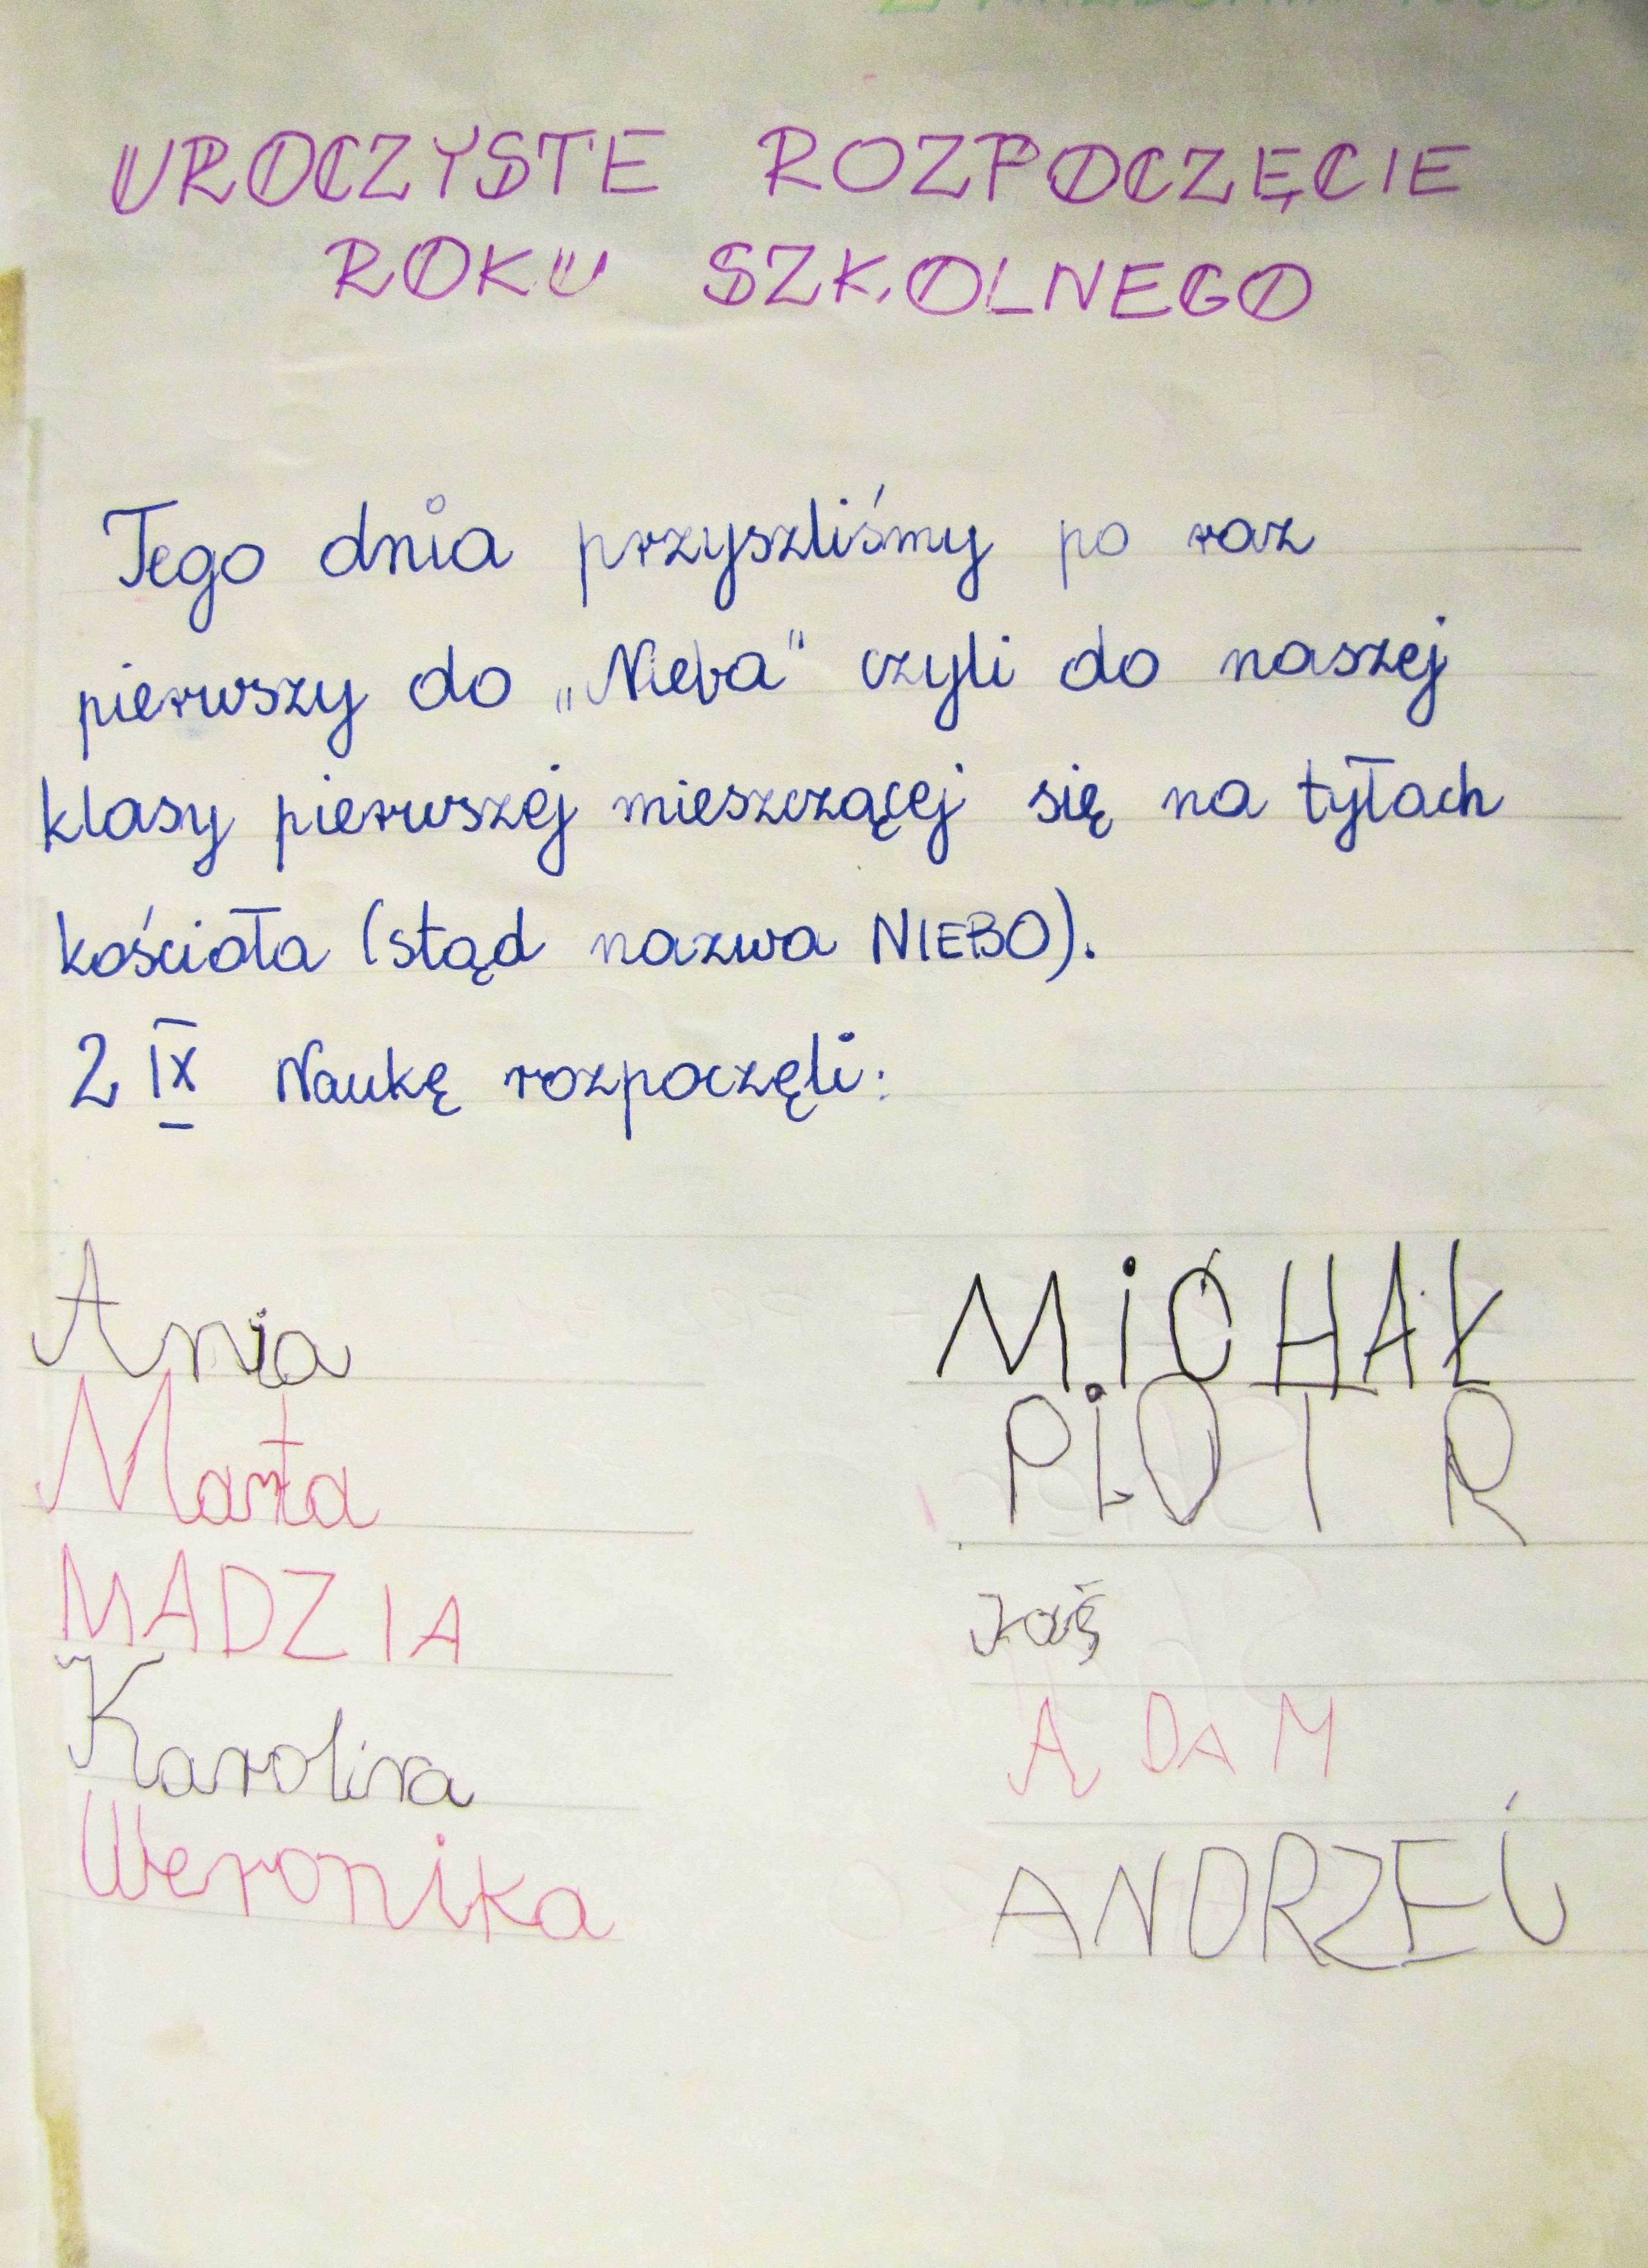 UROCZYSTE ROZPOCZĘCIE
ROKU SZKOLNEGO
Tego dnia przyszliśmy po raz
pierwszy do „Nieba" czyli do naszej
klasy pierwszej mieszczącej się na tyłach
kościoła (stąd nazwa NIEBO).
2 IX Naukę rozpoczęli:
Ania
Marta
MADZIA
Karolina
Weronika
MiCHAŁ
PiOTR
Jaś
ADAM
ANDRZEJ